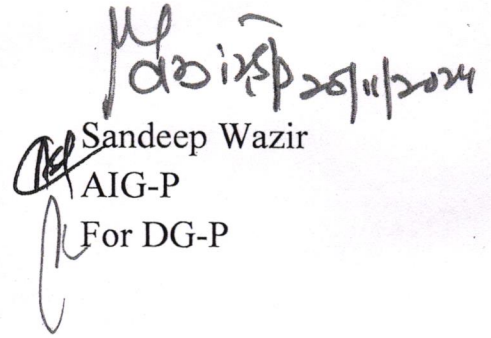 25/11/2024
Sandeep Wazir
AIG-P
For DG-P